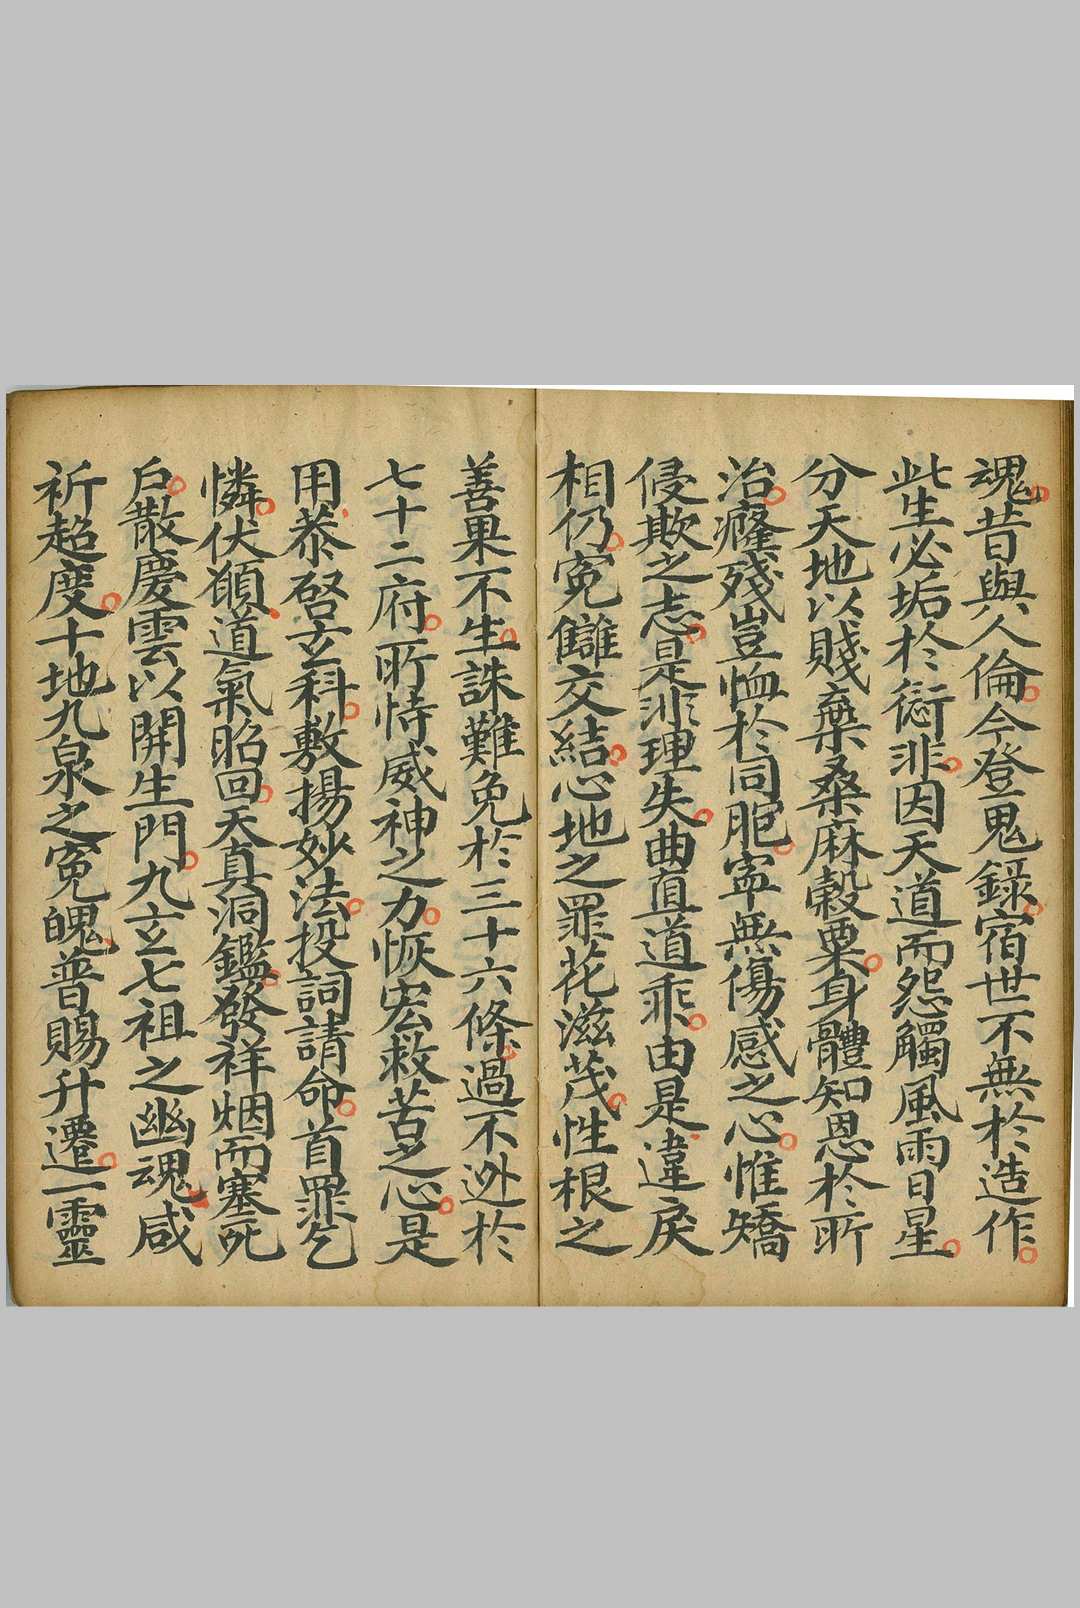 魂昔與人倫今登鬼錄宿世不無於造作
此生必垢於愆非因天道而怨觸風雨日星
分天地以賤棄桑麻穀粟身體知恩於所
治癃殘豈恤於同胞寧無傷感之心惟矯
侵欺之志是非理失曲直道乖由是違戾
相仍寃讎交結心地之罪花滋茂性根之
善果不生誅難免於三十六條過不逃於
七十二府所恃威神之力恢宏救苦之心是
用恭啓玄科敷揚妙法投詞請命首罪乞
憐伏願道氣昭回天真洞鑑發祥烟而塞死
户散慶雲以開生門九玄七祖之幽魂咸
祈超度十地九泉之寃魄普賜升遷一靈